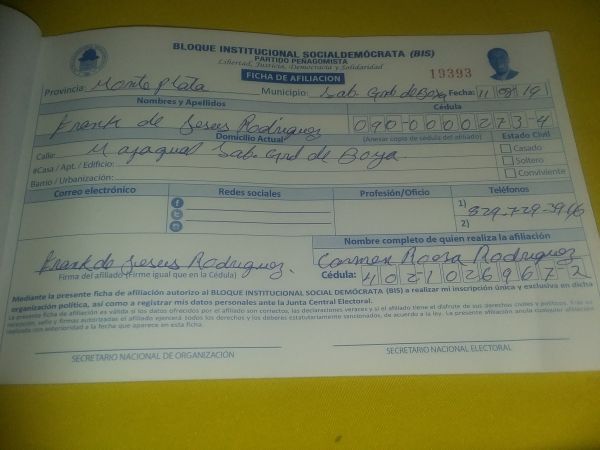 BLOQUE INSTITUCIONAL SOCIALDEMÓCRATA (BIS)
PARTIDO PEÑAGOMISTA
Libertad, Justicia, Democracia y Solidaridad
FICHA DE AFILIACION 19393
Provincia: Monte Plata Municipio: Sab. Grd de Boya Fecha: 11/08/19
Nombres y Apellidos Cédula
Frank de Jesus Rodriguez 090-0000273-4
Domicilio Actual (Anexar copia de cédula del afiliado) Estado Civil
Calle: Majagual Sab. Grd de Boya Casado
#Casa / Apt. / Edificio: Soltero
Barrio / Urbanización: Conviviente
Correo electrónico Redes sociales Profesión/Oficio Teléfonos
1) 829-729-3966
2)
Nombre completo de quien realiza la afiliación
Frank de Jesus Rodriguez. Carmen Rosa Rodriguez
Firma del afiliado (Firme igual que en la Cédula) Cédula: 40210269672
Mediante la presente ficha de afiliación autorizo al BLOQUE INSTITUCIONAL SOCIAL DEMÓCRATA (BIS) a realizar mi inscripción única y exclusiva en dicha
organización política, así como a registrar mis datos personales ante la Junta Central Electoral.
La presente ficha de afiliación es válida si los datos ofrecidos por el afiliado son correctos, las declaraciones veraces y si el afiliado tiene el disfrute de sus derechos civiles y políticos.
realizada con anterioridad a la fecha que aparece en esta ficha.
SECRETARIO NACIONAL DE ORGANIZACIÓN SECRETARIO NACIONAL ELECTORAL